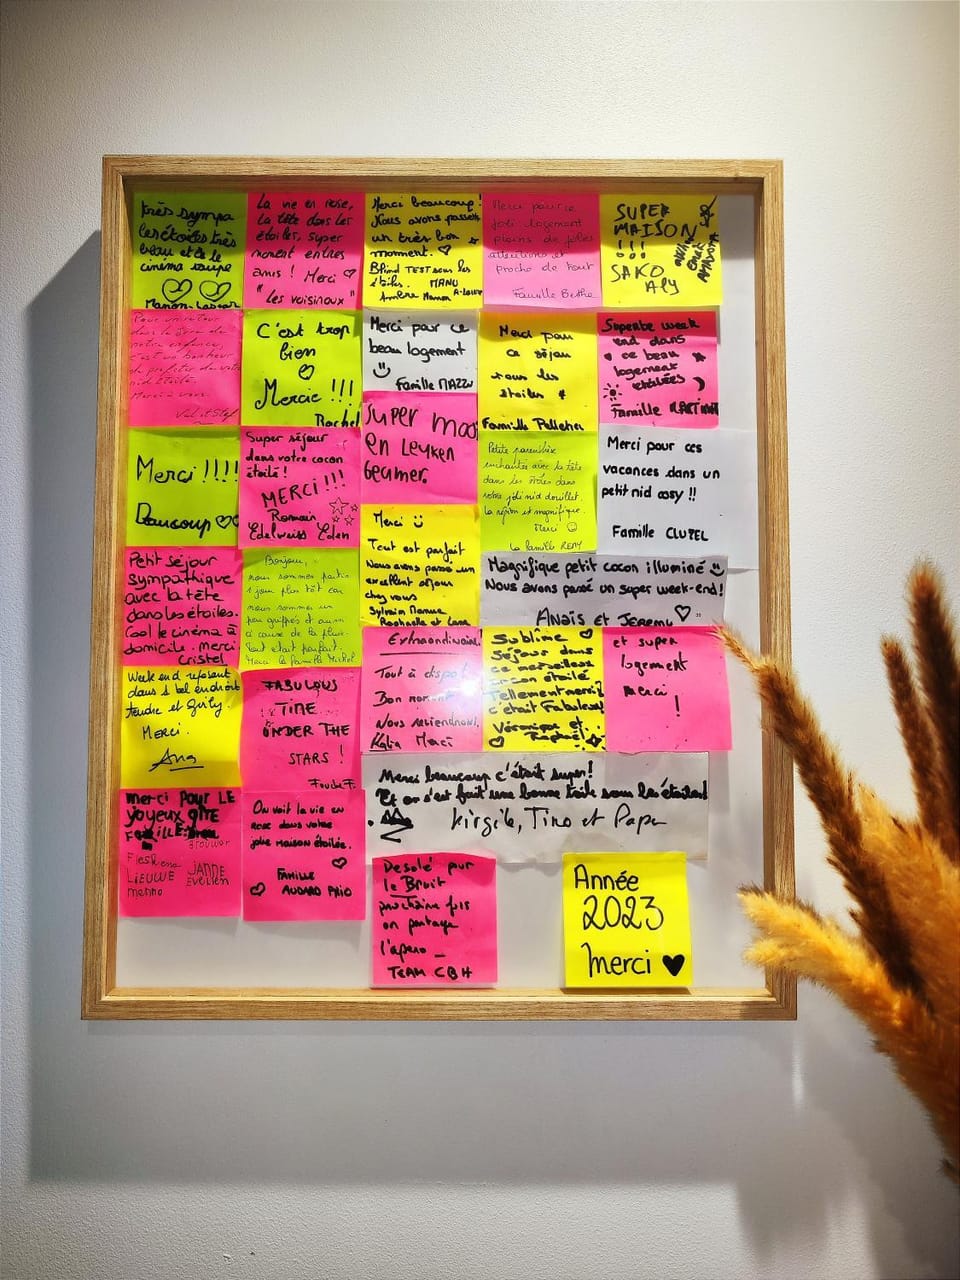 très sympa
les étoiles très
beau et le
cinéma
Manon
La vie en rose,
la tête dans les
étoiles, super
moment entres
amis ! Merci ♡
" Les voisinoux "
Merci beaucoup !
Nous avons passés
un très bon
moment. ♡
Blind TEST sous les
étoiles. MANU
Ambre Manon
Merci pour ce
joli logement
pleins de jolies
attentions et
proche de tout
Famille
SUPER
MAISON
!!!
SAKO
ALY
Pour un retour
dans la
notre enfance,
c'est un bonheur
de profiter de votre
nid étoilé.
Merci à vous.
Val et Stef
C'est trop
bien
♡
Mercie !!!
Rachel
Merci par ce
beau logement
Famille MAZZU
Merci pour
ce séjour
sous les
étoiles
Famille Pelletier
Superbe week
end dans
ce beau
logement
étoilées
Famille MARTINA
Merci !!!!
Baucoup ♡♡
Super séjour
dans votre cocon
étoilé !
MERCI !!!
Romain
Edelweiss Eden
Super mooi
en Leuken
Gramer.
Petite parenthèse
enchantée avec la tête
dans les étoiles dans
votre joli nid douillet.
La région est magnifique.
Merci ☺
La famille REMY
Merci pour ces
vacances dans un
petit nid cosy !!
Famille CLUPEL
Petit séjour
sympathique
avec la tête
dans les étoiles.
Cool le cinéma à
domicile. Merci
Cristel
Bonjour,
nous sommes partis
1 jour plus tôt car
nous sommes un
peu grippés et aussi
à cause de la pluie.
Tout était parfait.
Merci la famille Michel
Merci
Tout est parfait
Nous avons passé un
excellent séjour
chez vous
Sylvain Manue
Raphaelle et Lana
Magnifique petit cocon illuminé
Nous avons passé un super week-end !
Anaïs et Jeremy ♡
Week end reposant
dans 1 bel endroit
tendre et
Merci.
Ana
FABULOUS
TIME
UNDER THE
STARS !
Extraordinaire !
Tout à dispo
Bon moment
Nous reviendrons !
Katia Merci
Sublime ♡
Séjour dans
ce merveilleux
cocon étoilé
Tellement merci
c'était Fabuleux !
Véronique et
Raphaël
et super
logement
Merci
!
Merci beaucoup c'était super !
Et on s'est fait une bonne toile sous les étoiles !
Virgile, Tino et Papa
merci pour LE
yoyeux gîte
FAMILLE
Brouwer
LIEUWE
JANNE
EVELIEN
menno
On voit la vie en
rose dans votre
jolie maison étoilée.
FAMILLE
Desolé pour
le Bruit
prochaine fois
on partage
l'apero _
TEAM CBH
Année
2023
Merci ♥